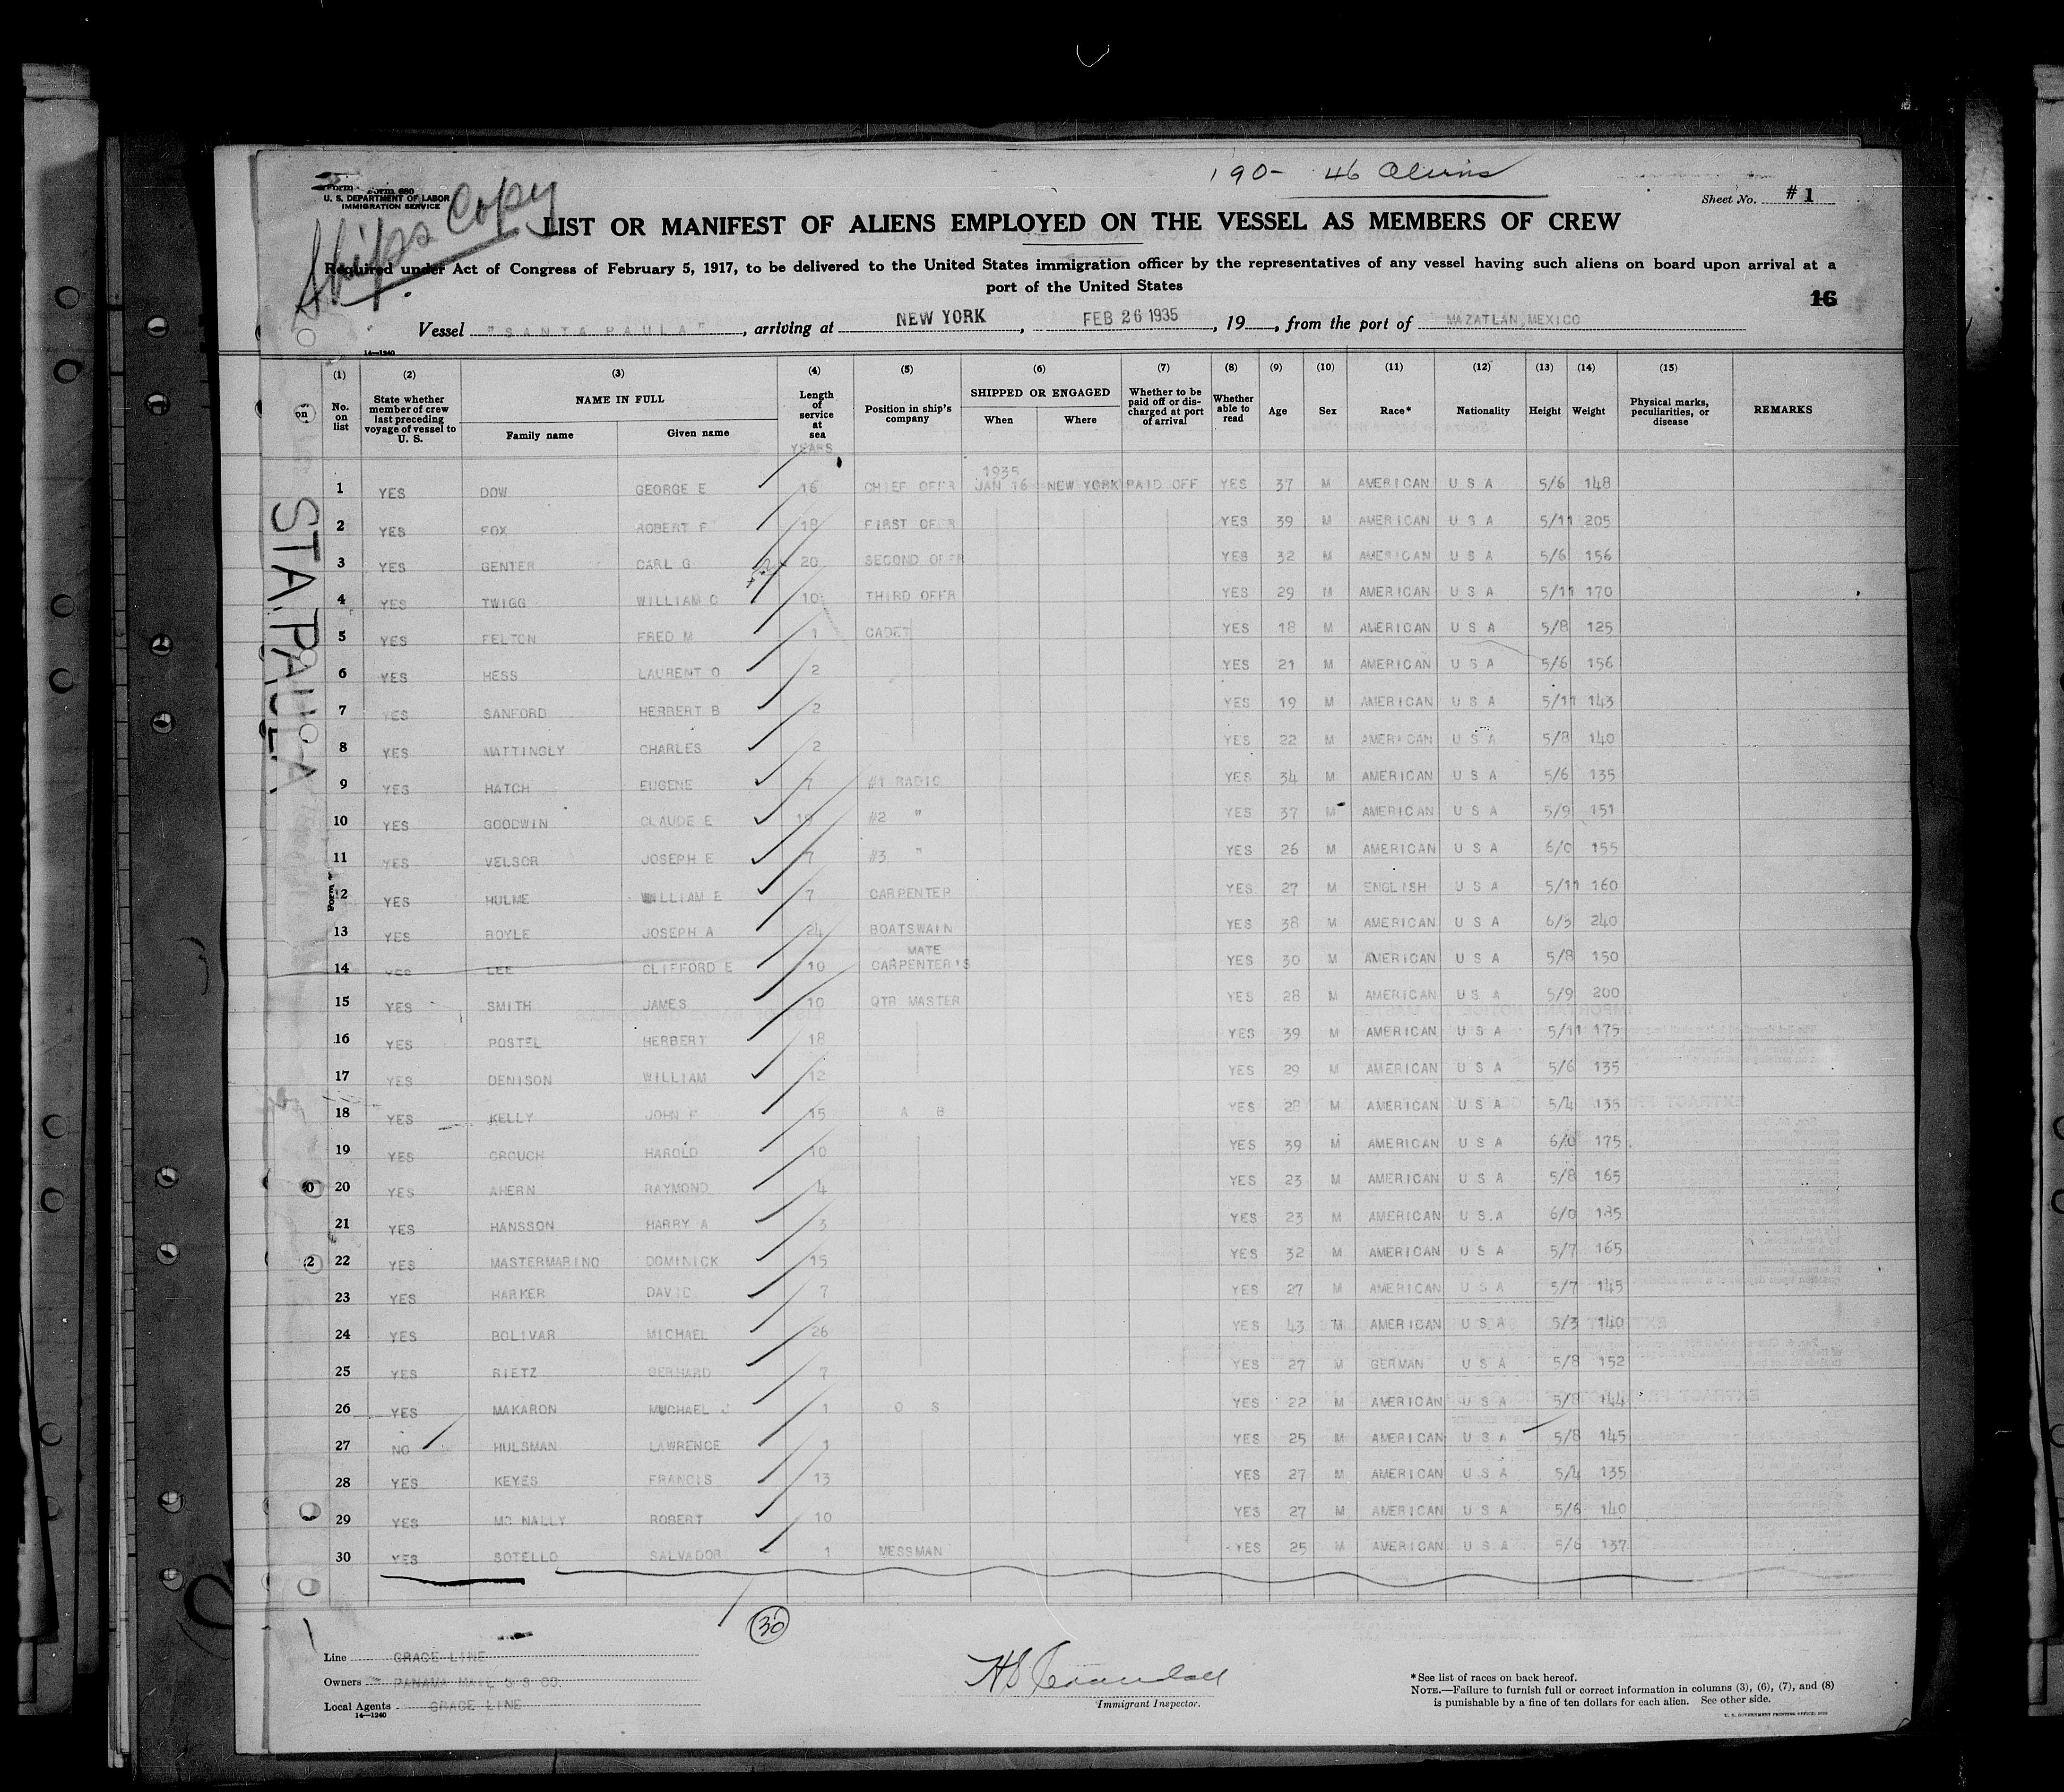 Form 680
U. S. DEPARTMENT OF LABOR
IMMIGRATION SERVICE
Ships Copy
190- 46 Aliens
Sheet No. #1
LIST OR MANIFEST OF ALIENS EMPLOYED ON THE VESSEL AS MEMBERS OF CREW
Required under Act of Congress of February 5, 1917, to be delivered to the United States immigration officer by the representatives of any vessel having such aliens on board upon arrival at a
port of the United States
16
Vessel "SANTA PAULA", arriving at NEW YORK, FEB 26 1935, 19__, from the port of MAZATLAN, MEXICO
14—1240
STA. PAULA
(1) (2) (3) (4) (5) (6) (7) (8) (9) (10) (11) (12) (13) (14) (15)
No. on list State whether member of crew last preceding voyage of vessel to U. S. NAME IN FULL Family name Given name Length of service at sea Position in ship's company SHIPPED OR ENGAGED When Where Whether to be paid off or discharged at port of arrival Whether able to read Age Sex Race* Nationality Height Weight Physical marks, peculiarities, or disease REMARKS
YEARS
1935
1 YES DOW GEORGE E 16 CHIEF OFFR JAN 16 NEW YORK PAID OFF YES 37 M AMERICAN U S A 5/6 148
2 YES FOX ROBERT F 18 FIRST OFFR YES 39 M AMERICAN U S A 5/11 205
3 YES GENTER CARL G 20 SECOND OFFR YES 32 M AMERICAN U S A 5/6 156
4 YES TWIGG WILLIAM C 10 THIRD OFFR YES 29 M AMERICAN U S A 5/11 170
5 YES FELTON FRED M 1 CADET YES 18 M AMERICAN U S A 5/8 125
6 YES HESS LAURENT O 2 YES 21 M AMERICAN U S A 5/6 156
7 YES SANFORD HERBERT B 2 YES 19 M AMERICAN U S A 5/11 143
8 YES MATTINGLY CHARLES 2 YES 22 M AMERICAN U S A 5/8 140
9 YES HATCH EUGENE 7 #1 RADIO YES 34 M AMERICAN U S A 5/6 135
10 YES GOODWIN CLAUDE E 18 #2 " YES 37 M AMERICAN U S A 5/9 151
11 YES VELSOR JOSEPH E 7 #3 " YES 26 M AMERICAN U S A 6/0 155
12 YES HULME WILLIAM E 7 CARPENTER YES 27 M ENGLISH U S A 5/11 160
13 YES BOYLE JOSEPH A 24 BOATSWAIN YES 38 M AMERICAN U S A 6/3 240
14 YES LEE CLIFFORD E 10 CARPENTER'S MATE YES 30 M AMERICAN U S A 5/8 150
15 YES SMITH JAMES 10 QTR MASTER YES 28 M AMERICAN U S A 5/9 200
16 YES POSTEL HERBERT 18 YES 39 M AMERICAN U S A 5/11 175
17 YES DENISON WILLIAM 12 YES 29 M AMERICAN U S A 5/6 135
18 YES KELLY JOHN F 15 A B YES 28 M AMERICAN U S A 5/4 135
19 YES CROUCH HAROLD 10 YES 39 M AMERICAN U S A 6/0 175
20 YES AHERN RAYMOND 4 YES 23 M AMERICAN U S A 5/8 165
21 YES HANSSON HARRY A 3 YES 23 M AMERICAN U S A 6/0 185
22 YES MASTERMARINO DOMINICK 15 YES 32 M AMERICAN U S A 5/7 165
23 YES HARKER DAVID 7 YES 27 M AMERICAN U S A 5/7 145
24 YES BOLIVAR MICHAEL 26 YES 43 M AMERICAN U S A 5/3 140
25 YES RIETZ GERHARD 7 YES 27 M GERMAN U S A 5/8 152
26 YES MAKARON MICHAEL J 1 O S YES 22 M AMERICAN U S A 5/8 144
27 NO HULSMAN LAWRENCE 1 YES 25 M AMERICAN U S A 5/8 145
28 YES KEYES FRANCIS 13 YES 27 M AMERICAN U S A 5/4 135
29 YES MC NALLY ROBERT 10 YES 27 M AMERICAN U S A 5/6 140
30 YES SOTELLO SALVADOR 1 MESSMAN YES 25 M AMERICAN U S A 5/6 137
30
Line GRACE LINE
Owners PANAMA MAIL S S CO.
Local Agents GRACE LINE
14—1240
H S Crandall
Immigrant Inspector.
*See list of races on back hereof.
NOTE.—Failure to furnish full or correct information in columns (3), (6), (7), and (8)
is punishable by a fine of ten dollars for each alien. See other side.